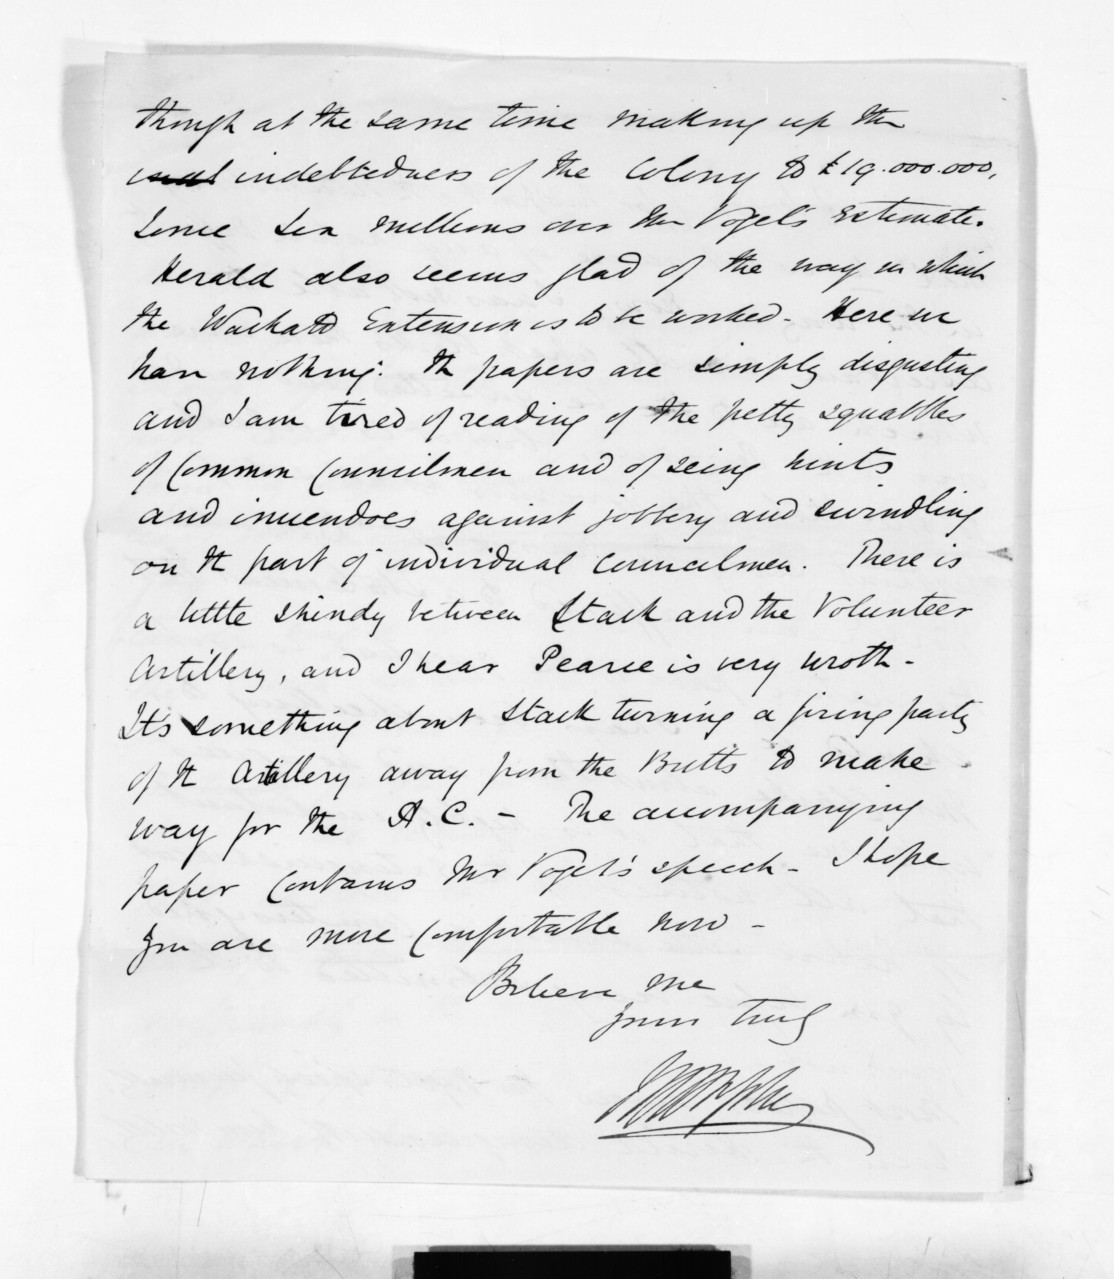 though at the same time making up the
usual indebtedness of the Colony to £19.000.000,
some six millions over Mr Vogel's Estimate.
Herald also seems glad of the way in which
the Waikato Extension is to be worked. Here we
have nothing. The papers are simply disgusting
and I am tired of reading of the petty squabbles
of Common Councilmen and of seeing hints
and inuendoes against jobbery and swindling
on the part of individual Councilmen. There is
a little shindy between Stack and the Volunteer
Artillery, and I hear Pearce is very wroth -
It's something about Stack turning a firing party
of the Artillery away from the Butts to make
way for the A.C. - The accompanying
paper contains Mr Vogel's speech - I hope
you are more comfortable now -
Believe me
yours truly